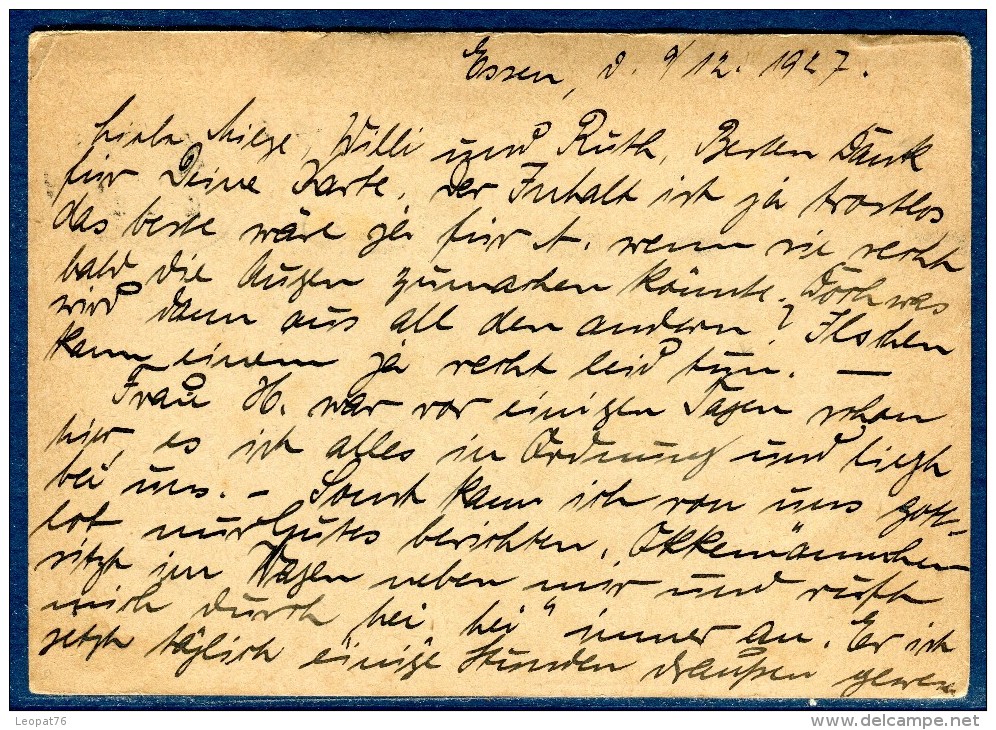 Essen, d. 9/12. 1927.
Liebe Miege, Willi und Ruth, Besten Dank
für Deine Karte, der Inhalt ist ja trostlos,
das beste wäre ja für A. wenn sie recht
bald die Augen zumachen könnte. Doch was
wird dann aus all den andern? Ilschen
kann einem ja recht leid tun. —
Frau H. war vor einigen Tagen schon
hier, es ist alles in Ordnung und liegt
bei uns. - Sonst kann ich von uns gott-
lob nur Gutes berichten. Okkemännchen
sitzt im Wagen neben mir und ruft
mich durch hei hei" immer an. Er ist
jetzt täglich einige Stunden draußen gewe
Leopat76
delcampe.net